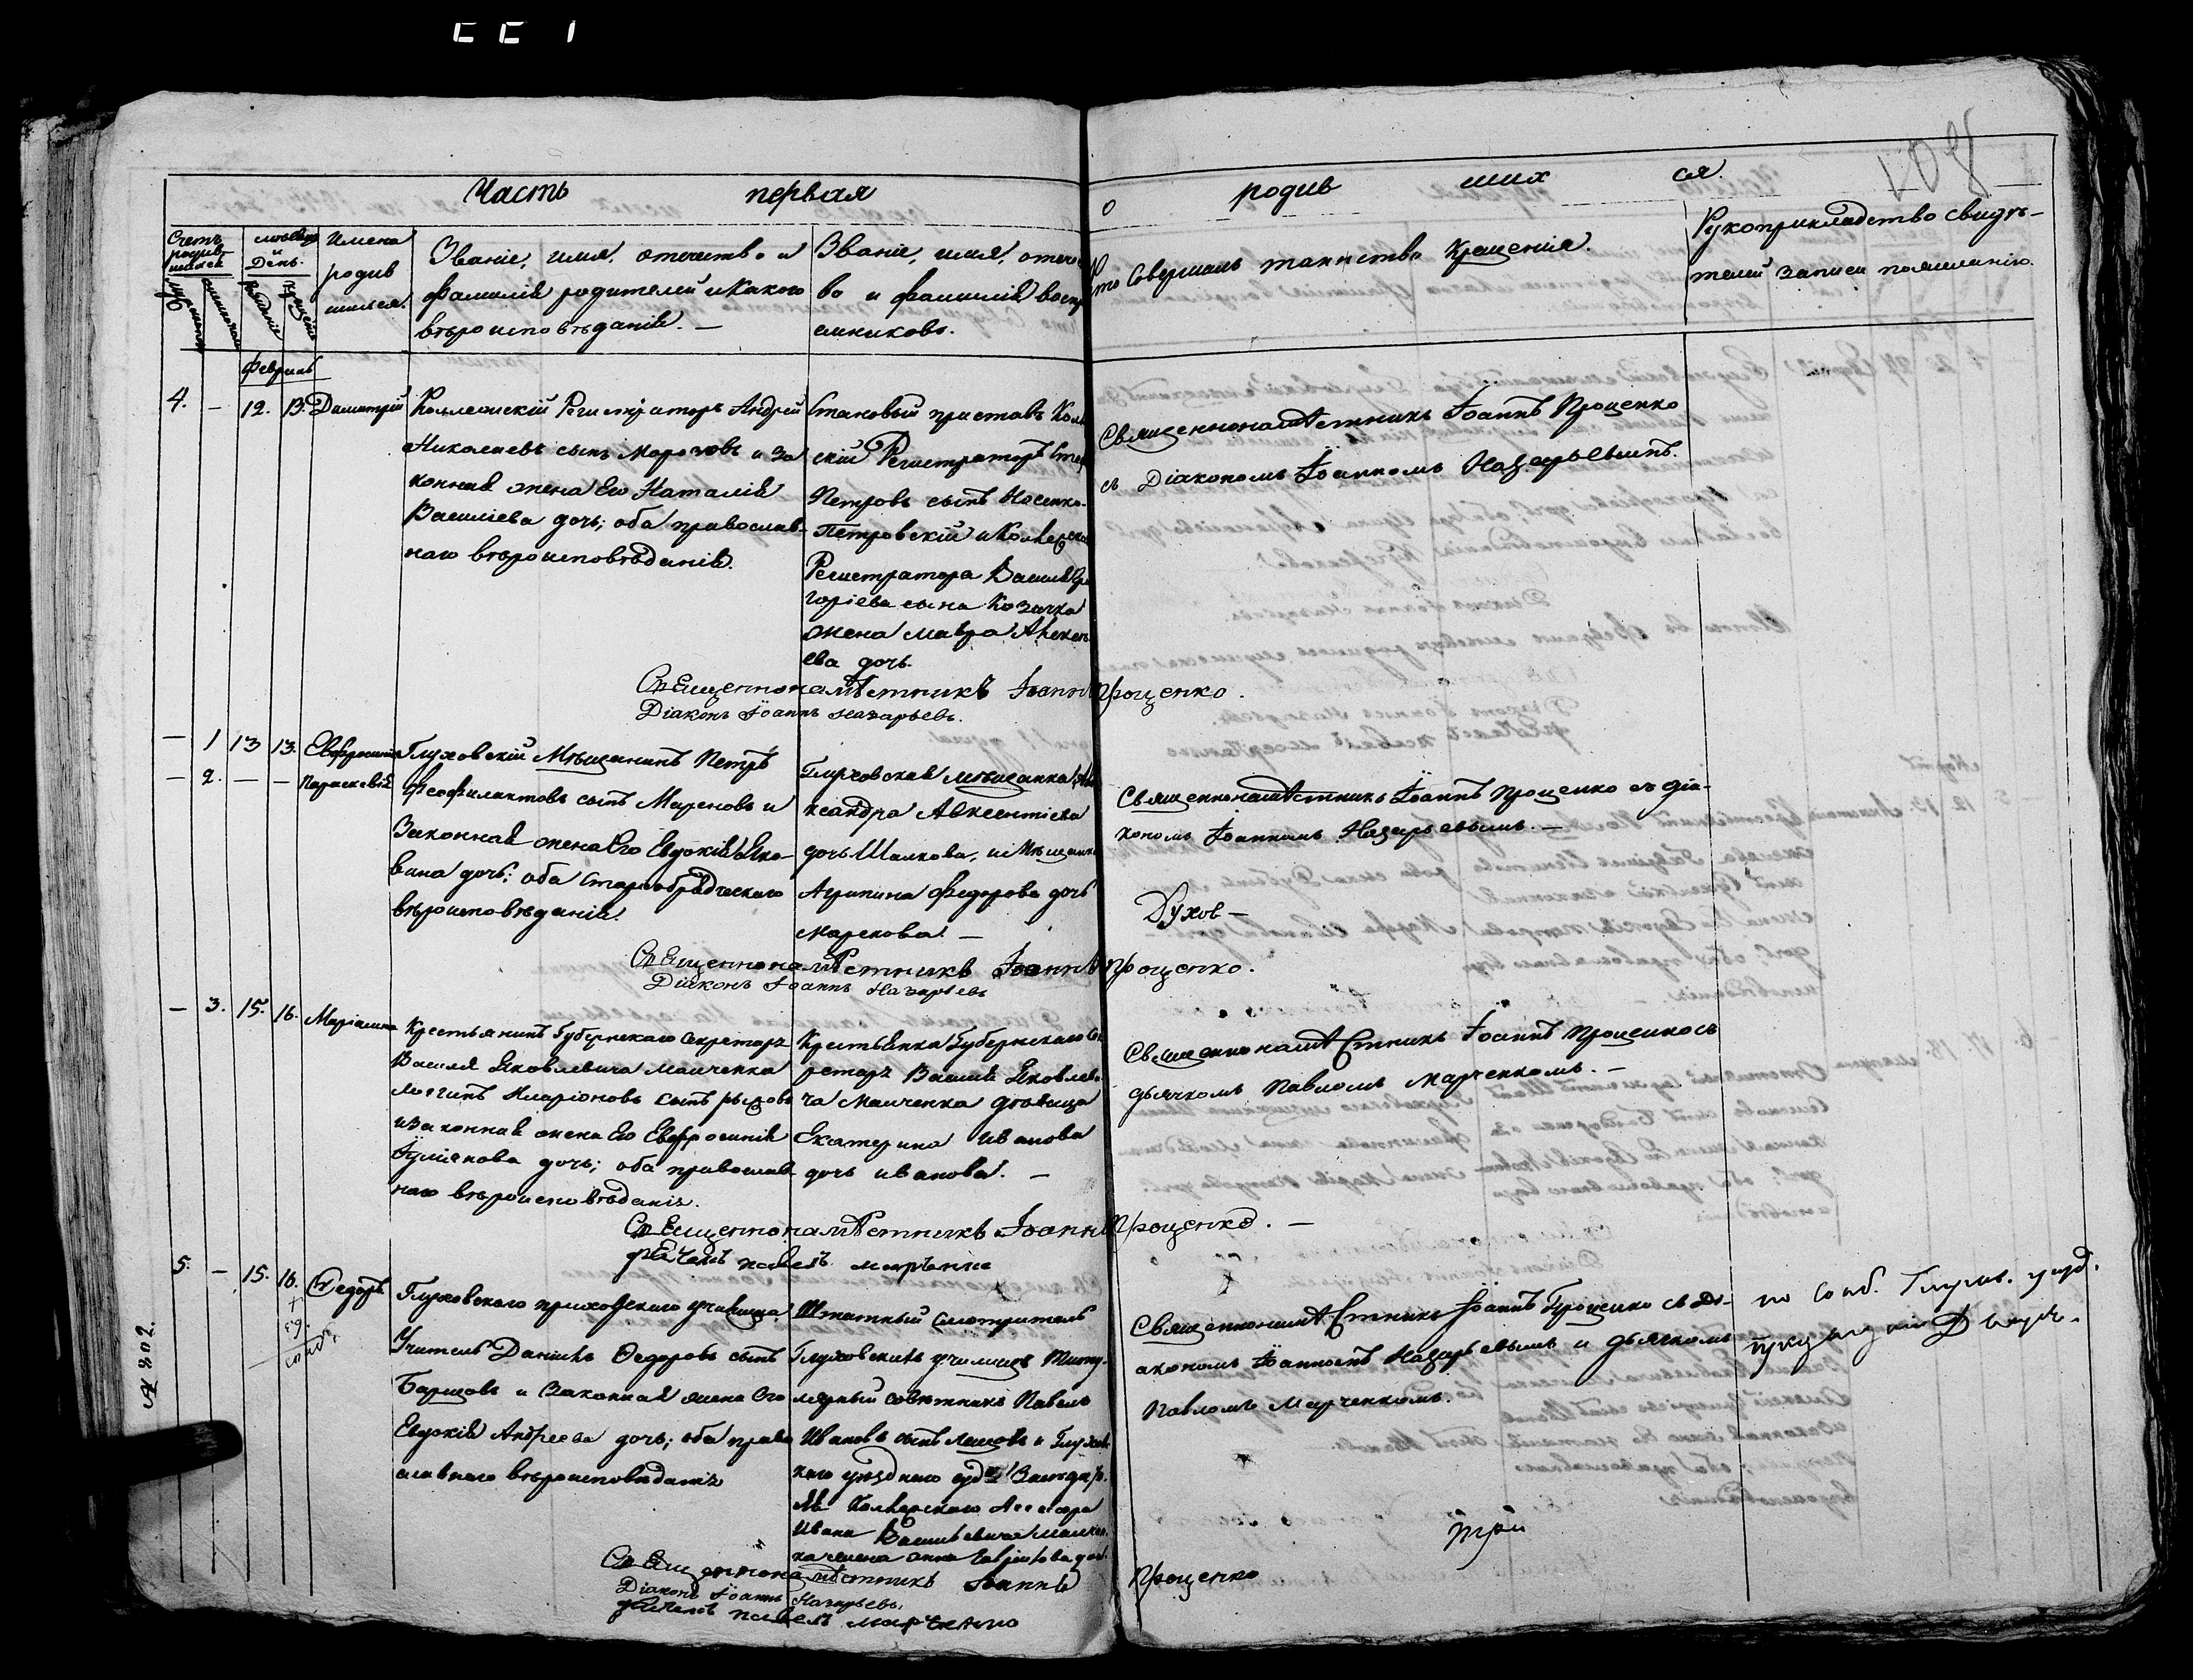 Часть первая
о родив ших ся.
Счетъ родив-шихся
Мѣсяцъ и День.
Имена родив шихся.
Званіе, имя, отечество и
фамилія родителей и какого
вѣроисповѣданія. —
Званіе, имя, отечес
во и фамилія воспр
емниковъ.
Кто совершалъ таинство крещенія.
Рукоприкладство свидѣ-
телей записи по желанію.
Февраль
4. — 12. 13. Димитрій
Коллежскій Регистраторъ Андрей
Николаевъ сынъ Морозовъ и за
конная жена Его Наталія
Василіева дочь; оба православ-
наго вѣроисповѣданія.
Становый приставъ Кол
скій Регистраторъ
Петровъ сынъ Носенко-
Петровскій и Коллежска
Регистратора Василія Гри
горіева сына Козачка
жена Мавра Алексѣ
ева дочь.
Священнонамѣстникъ Іоаннъ Проценко
съ Діакономъ Іоанномъ Назарьевымъ.
Священнонамѣстникъ Іоаннъ Проценко.
Діаконъ Іоаннъ Назарьевъ.
— 1 13 13. Евфросинія
— 2. — — Параскевія
Глуховскій Мѣщанинъ Петръ
Феофилактовъ сынъ Мареновъ и
Законная жена Его Евдокія Яко-
влева дочь; оба старообрядческаго
вѣроисповѣданія.
Глуховская мѣщанка Але
ксандра Авксентіева
дочь Шалкова, и Мѣщанка
Агрипина Федорова дочь
Маренова. —
Священнонамѣстникъ Іоаннъ Проценко съ діа-
кономъ Іоанномъ Назарьевымъ. —
Духов —
Священнонамѣстникъ Іоаннъ Проценко.
Діаконъ Іоаннъ Назарьевъ
— 3. 15. 16. Маріамна
Крестьянинъ Губернскаго Секретаря
Василя Яковлевича Манченка
Логгинъ Иларіоновъ сынъ
и законная жена Его Евфросинія
дочь; оба православ-
наго вѣроисповѣданія.
Крестьянка Губернскаго Сек
ретаря Василія Яковлеви
ча Манченка дѣвица
Екатерина Иванова
дочь Иванова. —
Священнонамѣстникъ Іоаннъ Проценко съ
дьячкомъ Павломъ Марченкомъ. —
Священнонамѣстникъ Іоаннъ Проценко. —
дьячекъ Павелъ Марченко
5. — 15. 16. Ѳедоръ
Глуховскаго приходскаго училища
Учитель Даніилъ Ѳедоровъ сынъ
Барщовъ и Законная жена Его
Евдокія Андреева дочь; оба право
славнаго вѣроисповѣданія
Штатный Смотритель
Глуховскихъ училищъ Титу-
лярный совѣтникъ Павелъ
Ивановъ сынъ и Глухов
скаго уѣзднаго суда Засѣдате
ля Коллежскаго Ассесора
Ивана Васильевича
ка жена Анна дочь.
Священнонамѣстникъ Іоаннъ Проценко съ Ді-
акономъ Іоанномъ Назарьевымъ и дьячкомъ
Павломъ Марченкомъ.
три
Священнонамѣстникъ Іоаннъ Проценко
Діаконъ Іоаннъ Назарьевъ.
дьячекъ Павелъ Марченко
№ 302.